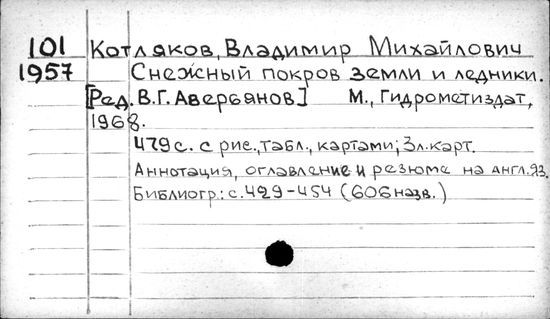 101 Котляков, Владимир Михайлович
1957 Снежный покров земли и ледники.
[Ред. В.Г. Аверьянов] М., Гидрометиздат,
1968.
479 с. с рис., табл., картами; 3 л. карт.
Аннотация, оглавление и резюме на англ. яз.
Библиогр.: с. 429-454 (606 назв.)